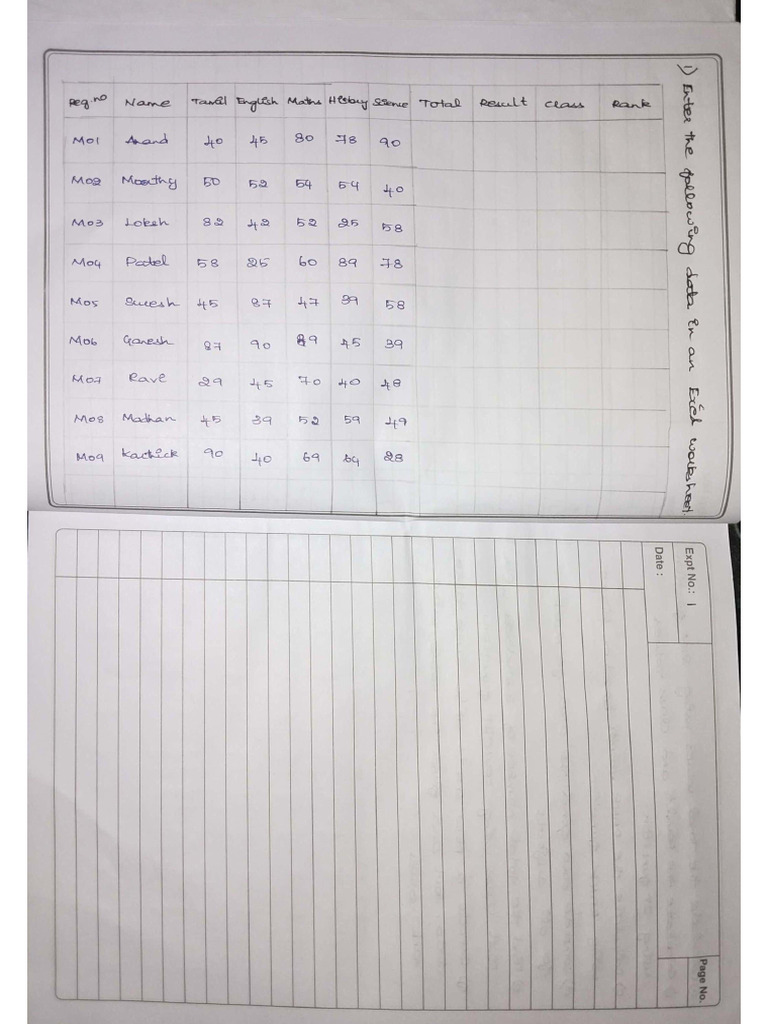 1) Enter the following data in an Excel worksheet.
Reg.no Name Tamil English Maths History Science Total Result Class Rank
M01 Anand 40 45 80 78 90
M02 Moorthy 50 52 54 54 40
M03 Lokesh 82 42 52 25 58
M04 Patel 58 25 60 89 78
M05 Suresh 45 87 47 39 58
M06 Ganesh 87 90 89 45 39
M07 Rave 29 45 70 40 48
M08 Madhan 45 39 52 59 49
M09 Karthick 90 40 69 64 28
Expt No.: 1
Date :
Page No.